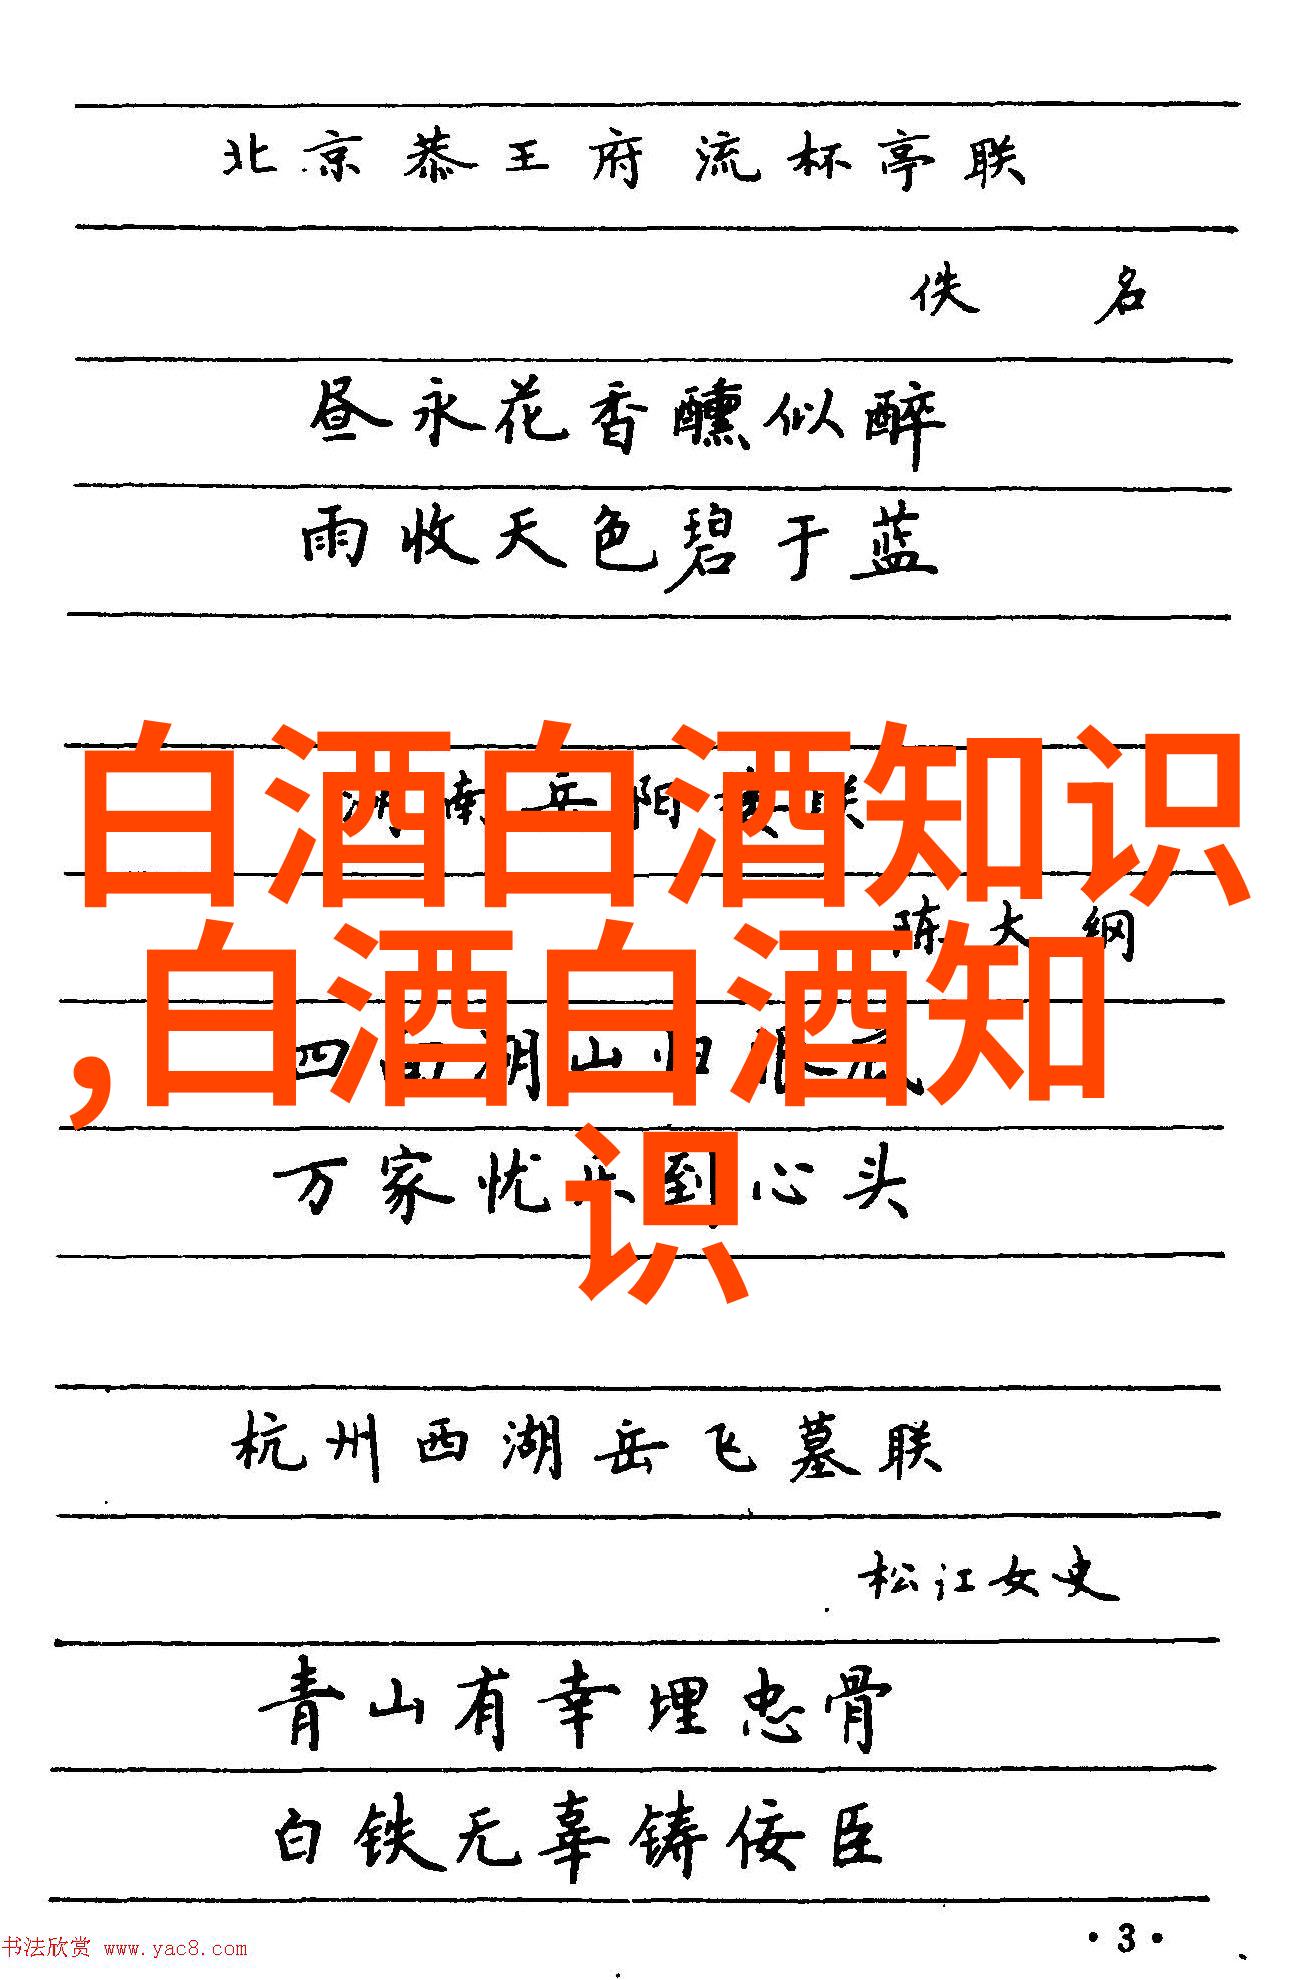 北京恭王府流杯亭联
佚名
昼永花香醺似醉
雨收天色碧于蓝
白酒白酒知识
湖南岳阳楼联
陈大纲
,白酒白酒知
四面湖山归眼底
识
万家忧乐到心头
杭州西湖岳飞墓联
松江女史
青山有幸埋忠骨
白铁无辜铸佞臣
·3·
书法欣赏 www.yac8.com